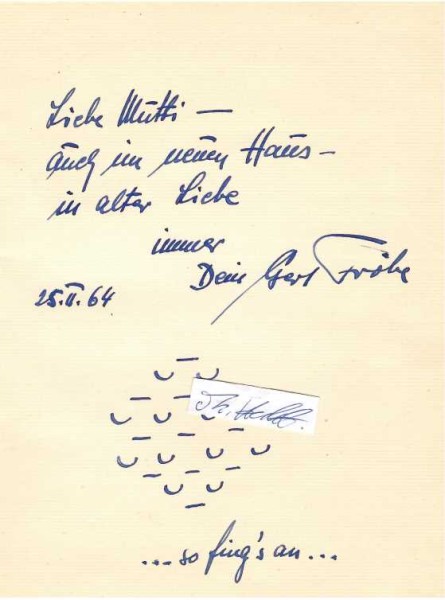 Liebe Mutti —
auch im neuen Haus –
in alter Liebe
immer
Dein Gert Fröbe
25.II.64
... so fing's an ...